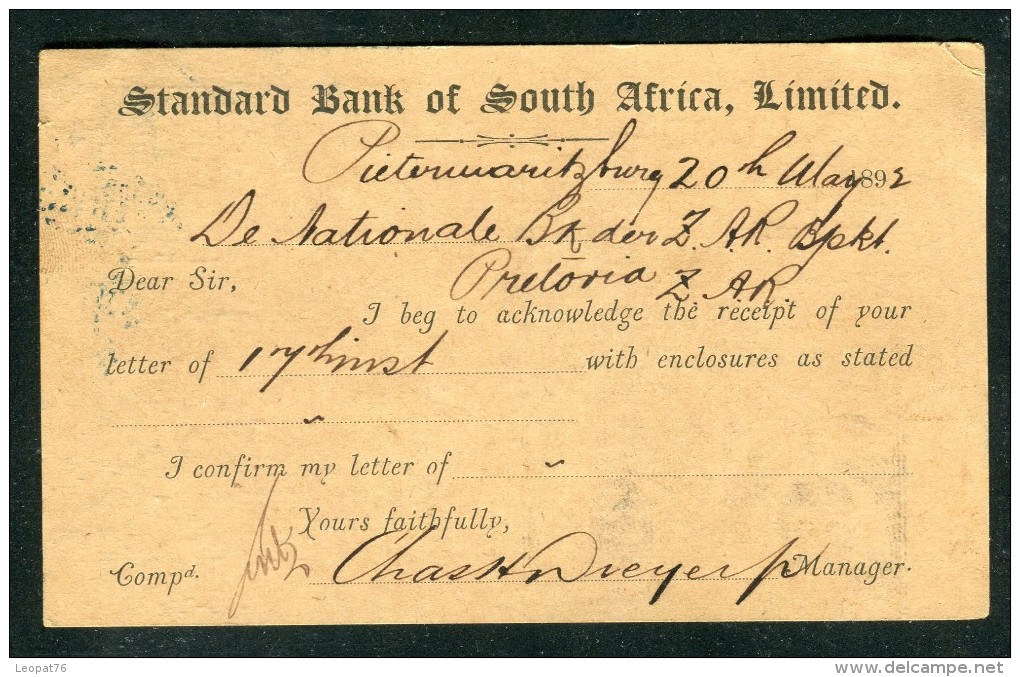 Standard Bank of South Africa, Limited.
Pietermaritzburg 20th May 1892
De Nationale Bk der Z. A.R. Bpkt.
Pretoria Z. A.R.
Dear Sir,
I beg to acknowledge the receipt of your
letter of 17th inst with enclosures as stated
"
I confirm my letter of "
Yours faithfully,
Compd. Chas H Dreyer p Manager.
Leopat76
www.delcampe.net